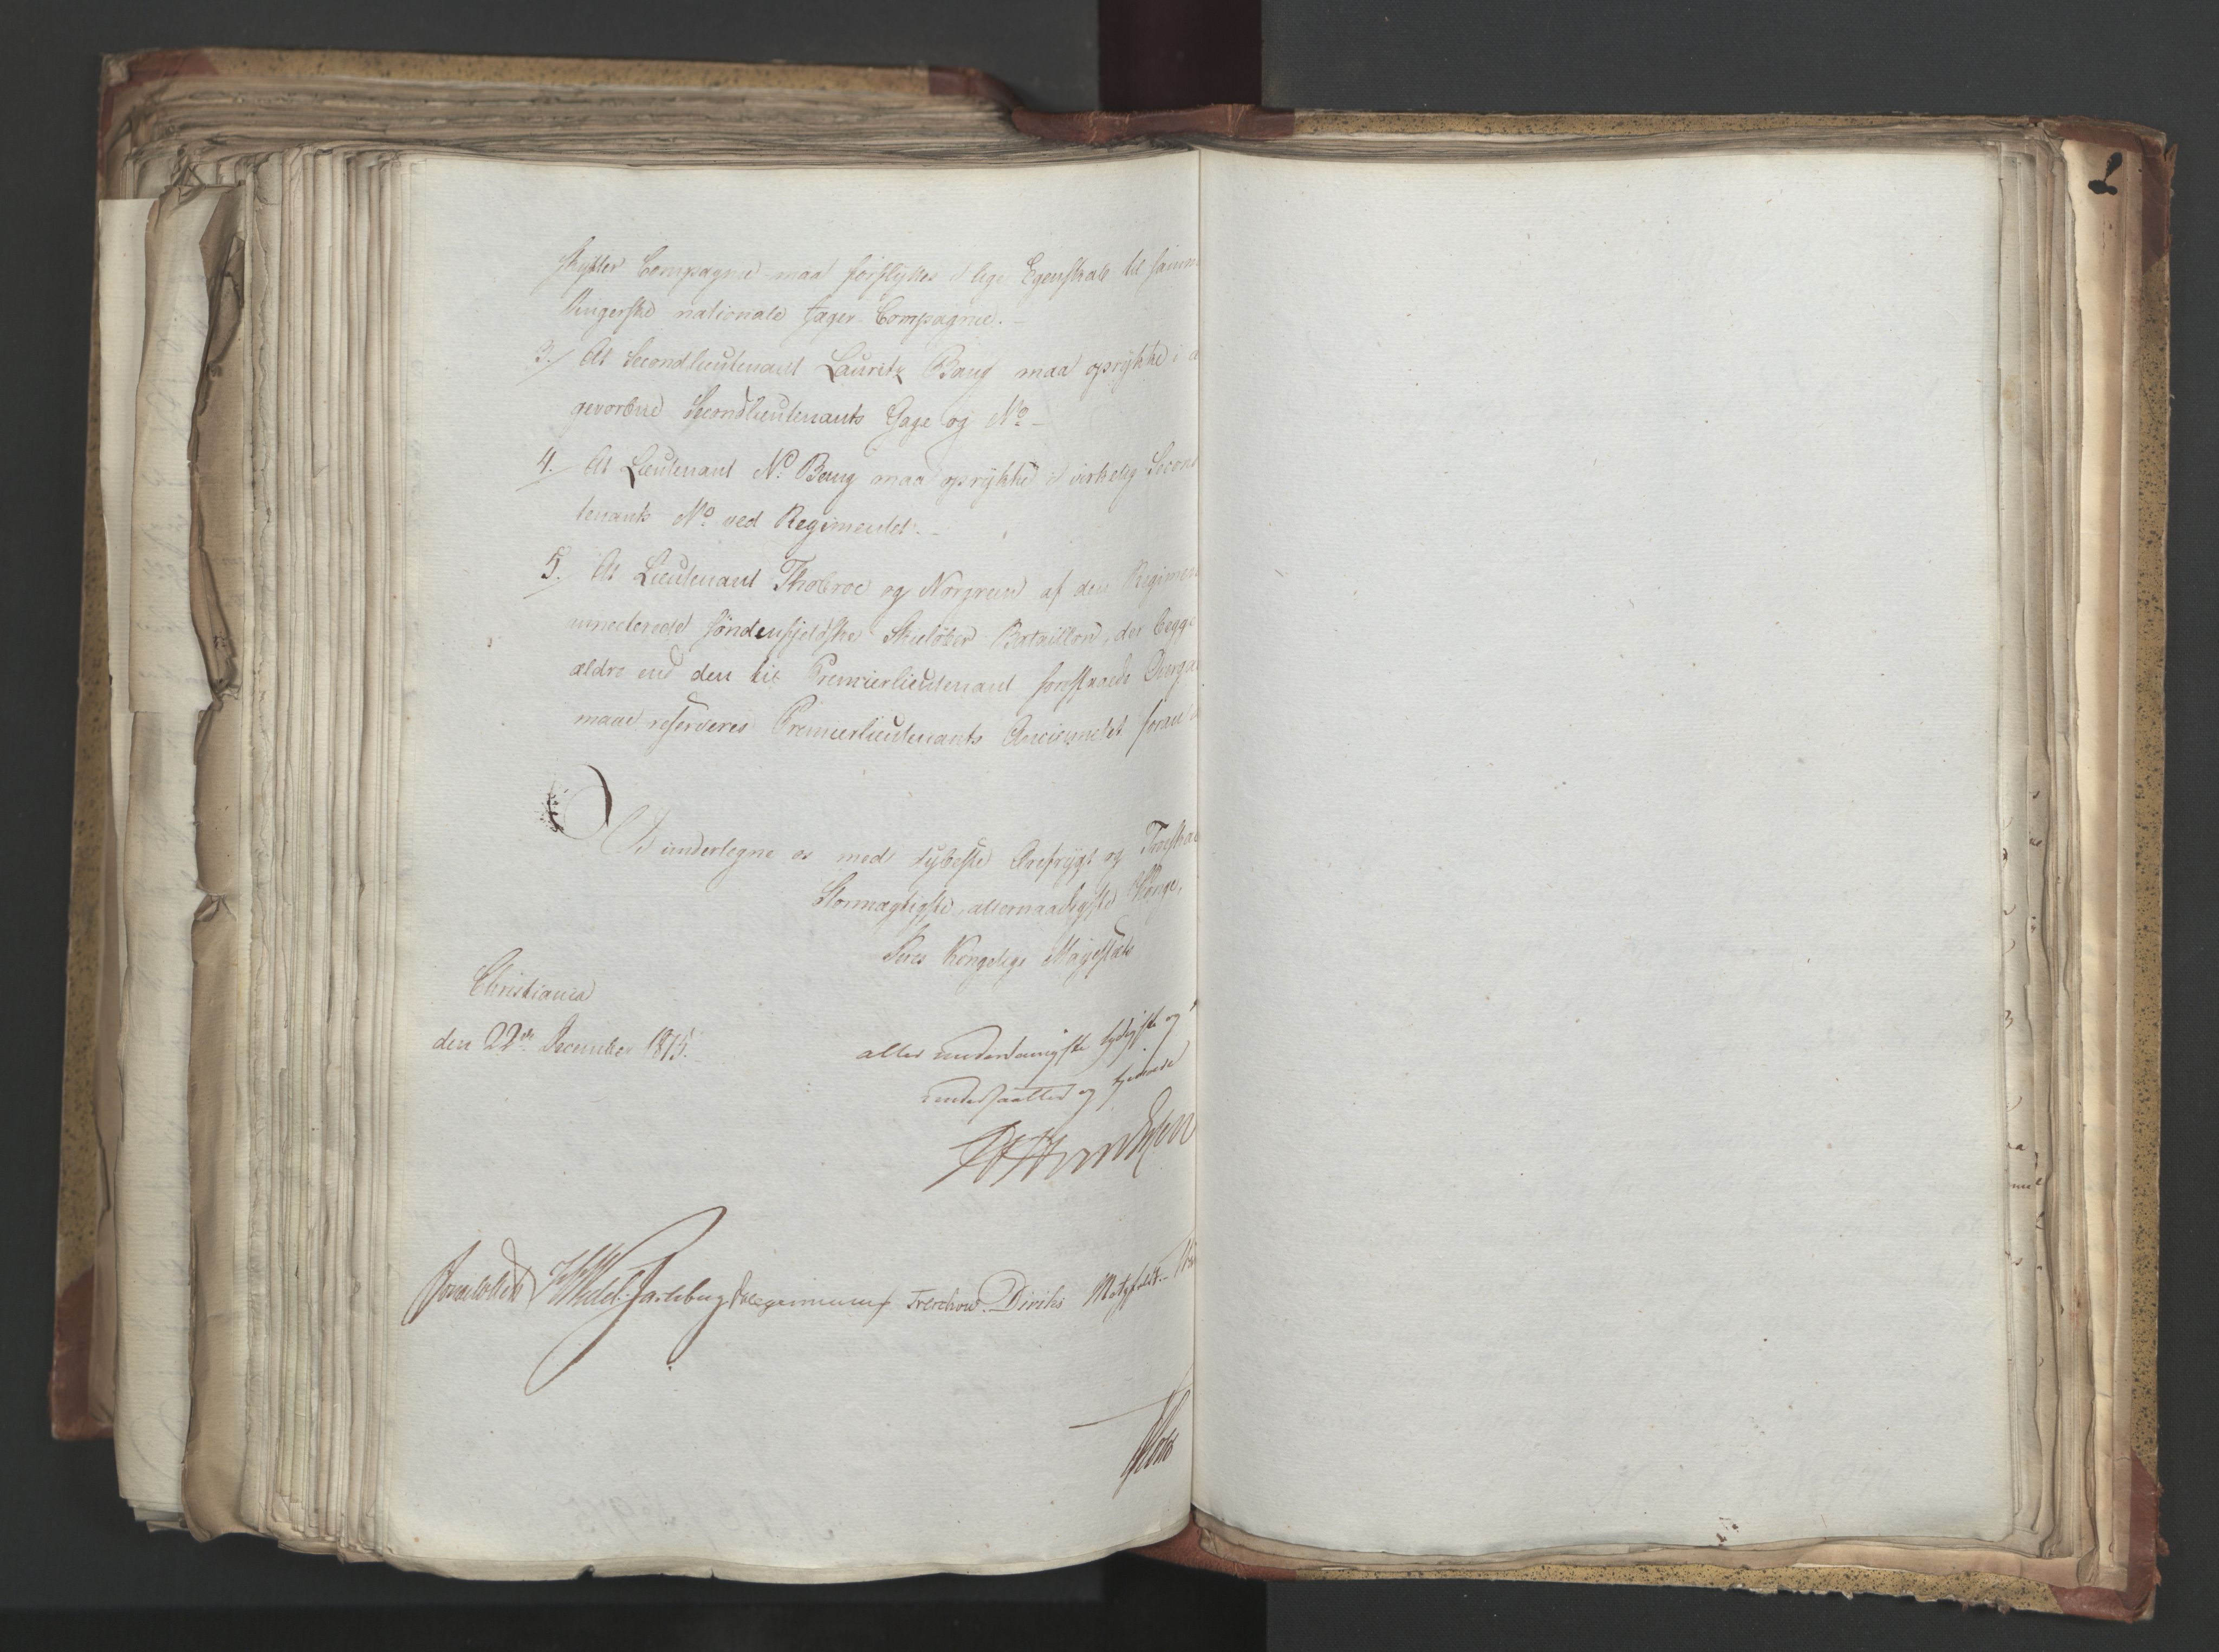 skytter Compagnie maa forflyttes i lige Egenskab til samm
Vingerske nationale Jæger Compagnie. –
3./ At Secondlieutenant Lauritz Baug maa oprykke i
gevorbne Secondlieutenants Gage og No –
4./ At Lieutenant N. Baug maa oprykke i virkelig Second
tenants No ved Regimentet. –
5./ At Lieutenant Tholroe og Norgreen af den Regimen
annecterede søndenfjeldske Skieløber Bataillon, der begge
ældre end den til Premierlieutenant foreslaaede
maae reserveres Premierlieutenants Anciennetet foran
Vi undertegne os med dybeste Ærefrygt og Troskab
Stormægtigste, allernaadigste Konge,
Deres Kongelige Majestæts
Christiania
den 22de December 1815.
aller underdanigste og
undersaatter og tjenere

Wedel Jarlsberg Treschow. Diriks Motzfeldt.
Holst